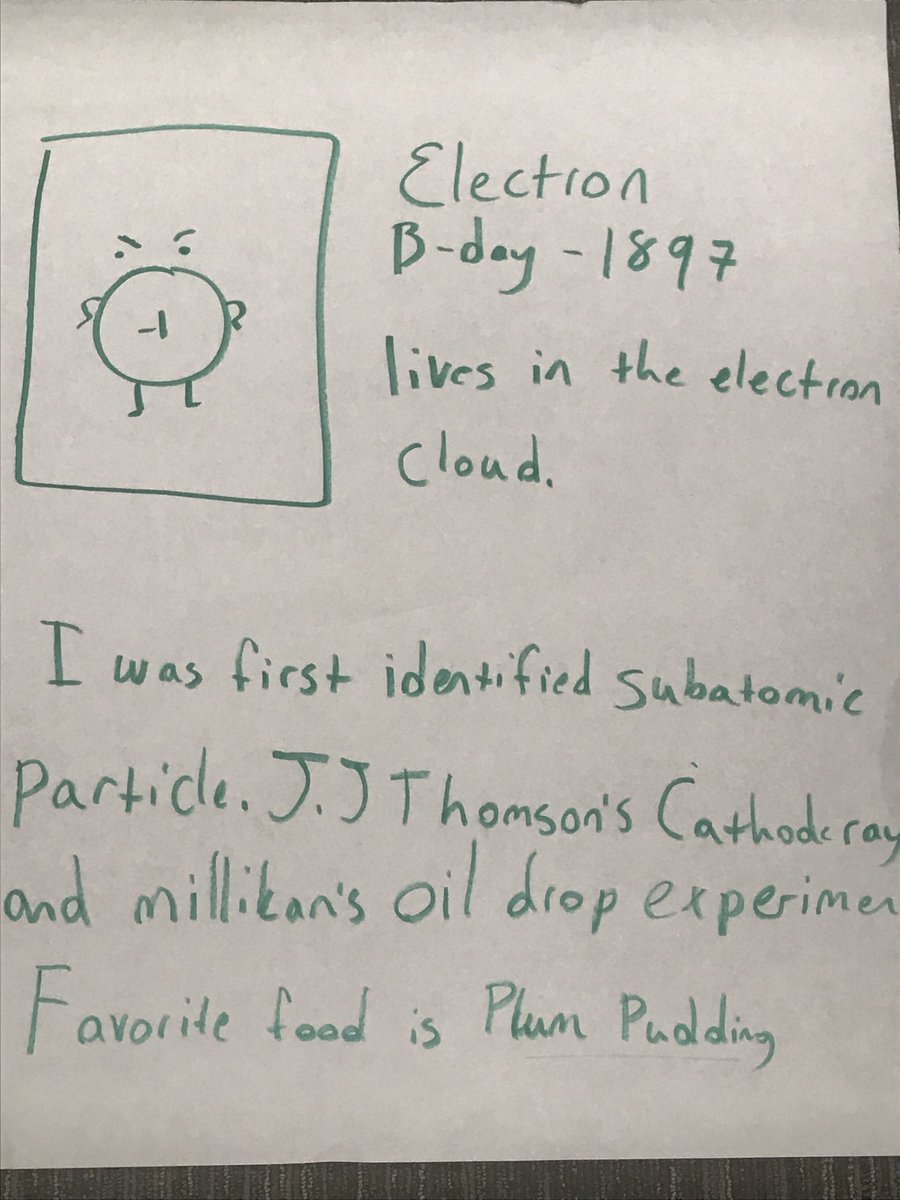 -1
Electron
B-day - 1897
lives in the electron
Cloud.
I was first identified subatomic
Particle. J.J Thomson's Cathode ray
and millikan's oil drop experimen
Favorite food is Plum Pudding